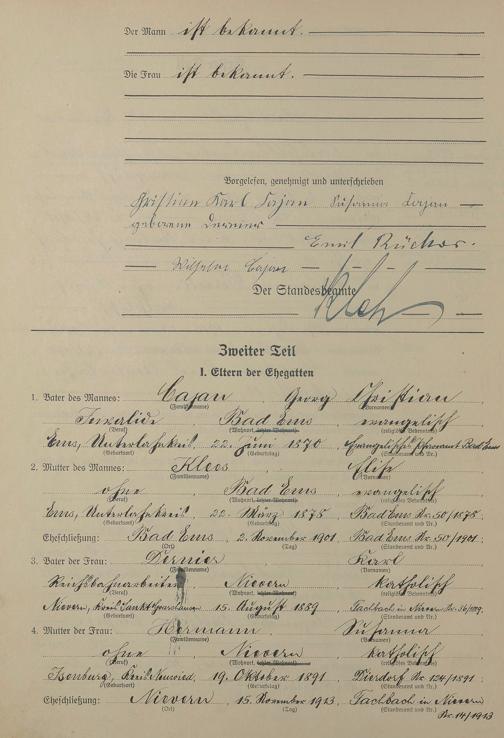 Der Mann ist bekannt.
Die Frau ist bekannt.
Vorgelesen, genehmigt und unterschrieben
Christian Karl Cajan Susanna Cajan
geborene Dernier
Emil Rücker.
Wilhelm Cajan
Der Standesbeamte
Zweiter Teil
I. Eltern der Ehegatten
1. Vater des Mannes: Cajan Georg Christian
(Familienname) (Vornamen)
Invalide Bad Ems evangelisch
(Beruf)
Ems, Unterlahnkreis 22. Juni 1870 Evangelisches Pfarramt Bad Ems
(Geburtsort) (Geburtstag) (Standesamt und Nr.)
2. Mutter des Mannes: Kloos Elise
(Familienname) (Vornamen)
ohne Bad Ems evangelisch
(Beruf)
Ems, Unterlahnkreis 22. März 1875 Bad Ems Nr. 50/1875
(Geburtsort) (Geburtstag) (Standesamt und Nr.)
Eheschließung: Bad Ems 2. November 1901 Bad Ems Nr. 50/1901
(Ort) (Tag) (Standesamt und Nr.)
3. Vater der Frau: Dernier Karl
(Familienname) (Vornamen)
Reichsbahnarbeiter Nievern katholisch
(Beruf)
Nievern, Kreis Sankt Goarshausen 15. August 1889 Fachbach in Nievern Nr. 36/1889
(Geburtsort) (Geburtstag) (Standesamt und Nr.)
4. Mutter der Frau: Hermann Susanna
(Familienname) (Vornamen)
ohne Nievern katholisch
(Beruf)
Isenburg, Kreis Neuwied 19. Oktober 1891 Dierdorf Nr. 124/1891
(Geburtsort) (Geburtstag) (Standesamt und Nr.)
Eheschließung: Nievern 15. November 1913 Fachbach in Nievern
(Ort) (Tag) (Standesamt und Nr.)
Nr. 14/1913